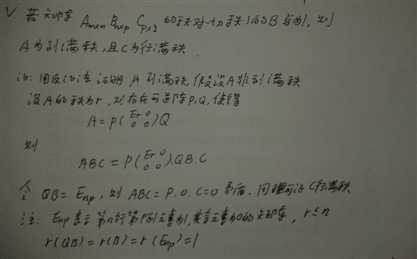 若对矩阵 Amxn Bnxp Cpxq 的 秩为1的B
A为列满秩,且C为行满秩
证:用反证法证明A列满秩,假设A非列满秩
设A的秩为r,则存在可逆阵P,Q,使得
A=P(Er 0 0 0)Q
则
ABC=P(Er 0 0 0)QB.C
令 QB=Enp,则ABC=P.0.C=0矛盾.同理可证C行满秩
注:Enp表示第n行第p列元素为1,其余元素为0的矩阵,r≤n
r(QB)=r(B)=r(Enp)=1